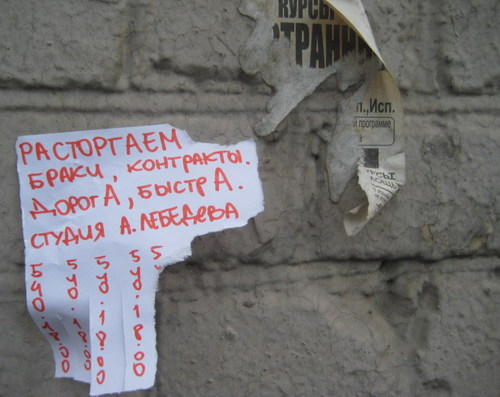 КУРСЫ
СТРАНН
п.,Исп.
программе
РАСТОРГАЕМ
БРАКИ, КОНТРАКТЫ.
ДОРОГА, БЫСТРА.
СТУДИЯ А. ЛЕБЕДЕВА
540.18.00
540.18.00
54.18.00
54.18.00
5